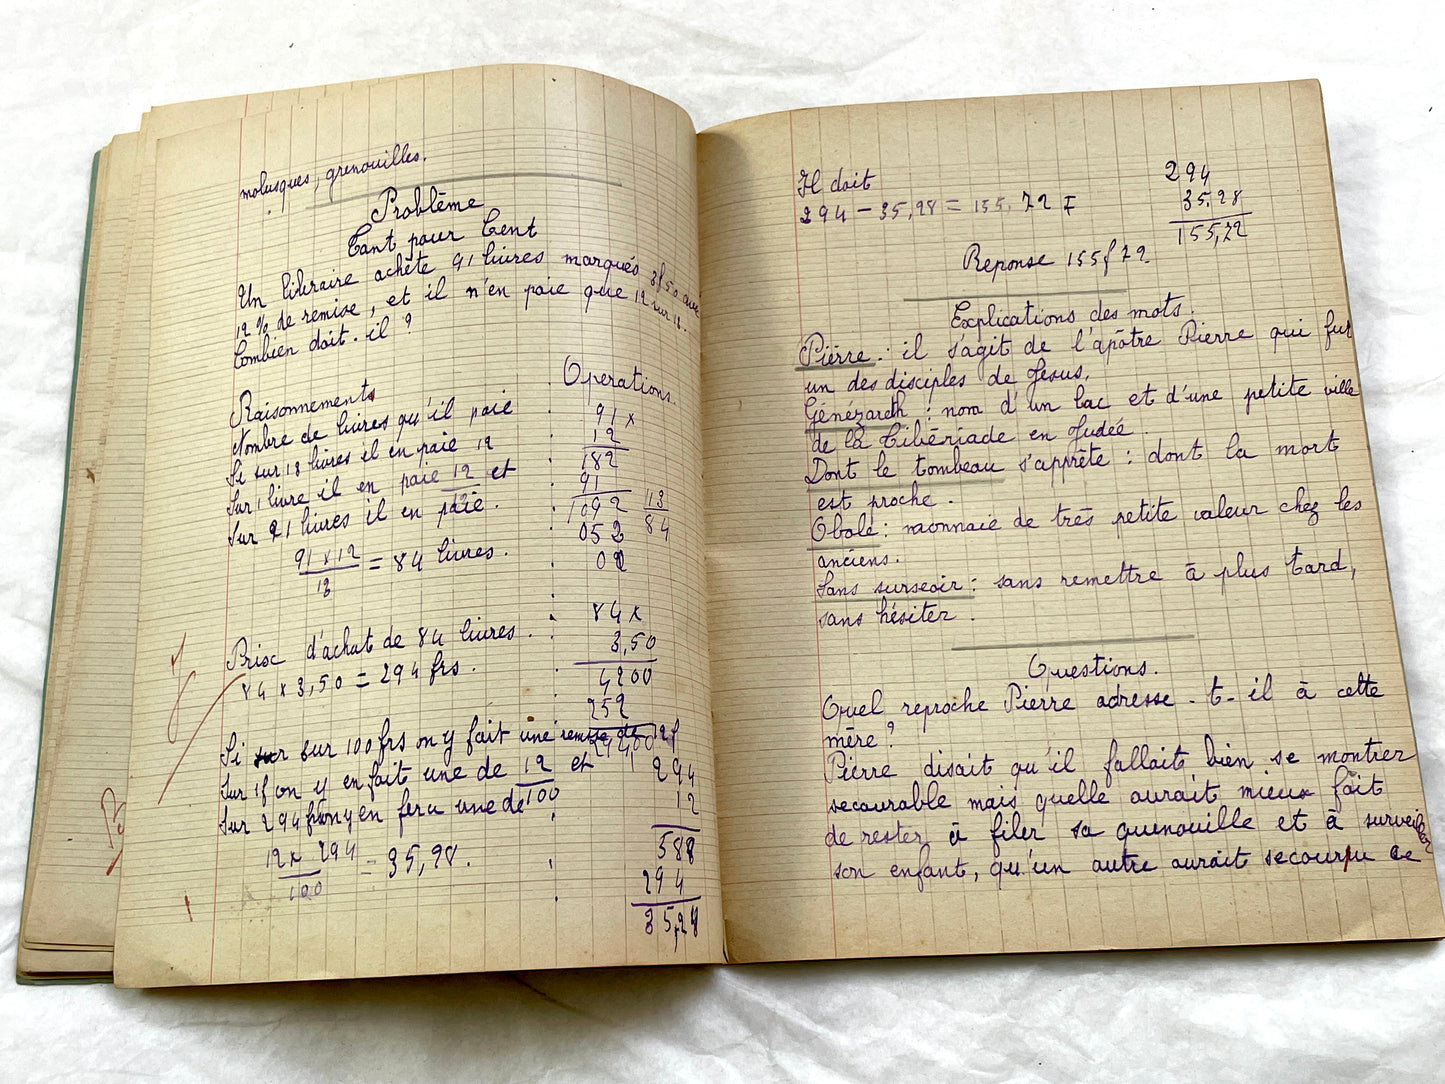 molusques, grenouilles.
Problème
Tant pour Cent
Un libraire achète 91 livres marqués 3f50 avec
12% de remise, et il n'en paie que 12 sur 13.
Combien doit-il ?
Raisonnements
Nombre de livres qu'il paie
Si sur 13 livres il en paie 12
Sur 1 livre il en paie 12 et
13
Sur 91 livres il en paie.
91 x 12 = 84 livres.
13
Prix d'achat de 84 livres.
84 x 3,50 = 294 frs.
Si sur sur 100 frs on y fait une remise de 12f
Sur 1f on y en fait une de 12 et
100
Sur 294 frs on y en fera une de
12 x 294 = 35,28.
100
Operations.
91 x
12
182
91
1092 13
052 84
00
84 x
3,50
4200
252
29400
294
12
588
294
35,28
Il doit
294 - 35,28 = 155,72 F
294
35,28
155,72
Reponse 155f72
Explications des mots.
Pierre : il s'agit de l'apôtre Pierre qui fut
un des disciples de Jesus.
Génézareth : nom d'un lac et d'une petite ville
de la Tibériade en Judée.
Dont le tombeau s'apprête : dont la mort
est proche.
Obole : monnaie de très petite valeur chez les
anciens.
Sans surseoir : sans remettre à plus tard,
sans hésiter.
Questions.
Quel reproche Pierre adresse-t-il à cette
mère ?
Pierre disait qu'il fallait bien se montrer
secourable mais quelle aurait mieux fait
de rester à filer sa quenouille et à surveiller
son enfant, qu'un autre aurait secouru ce